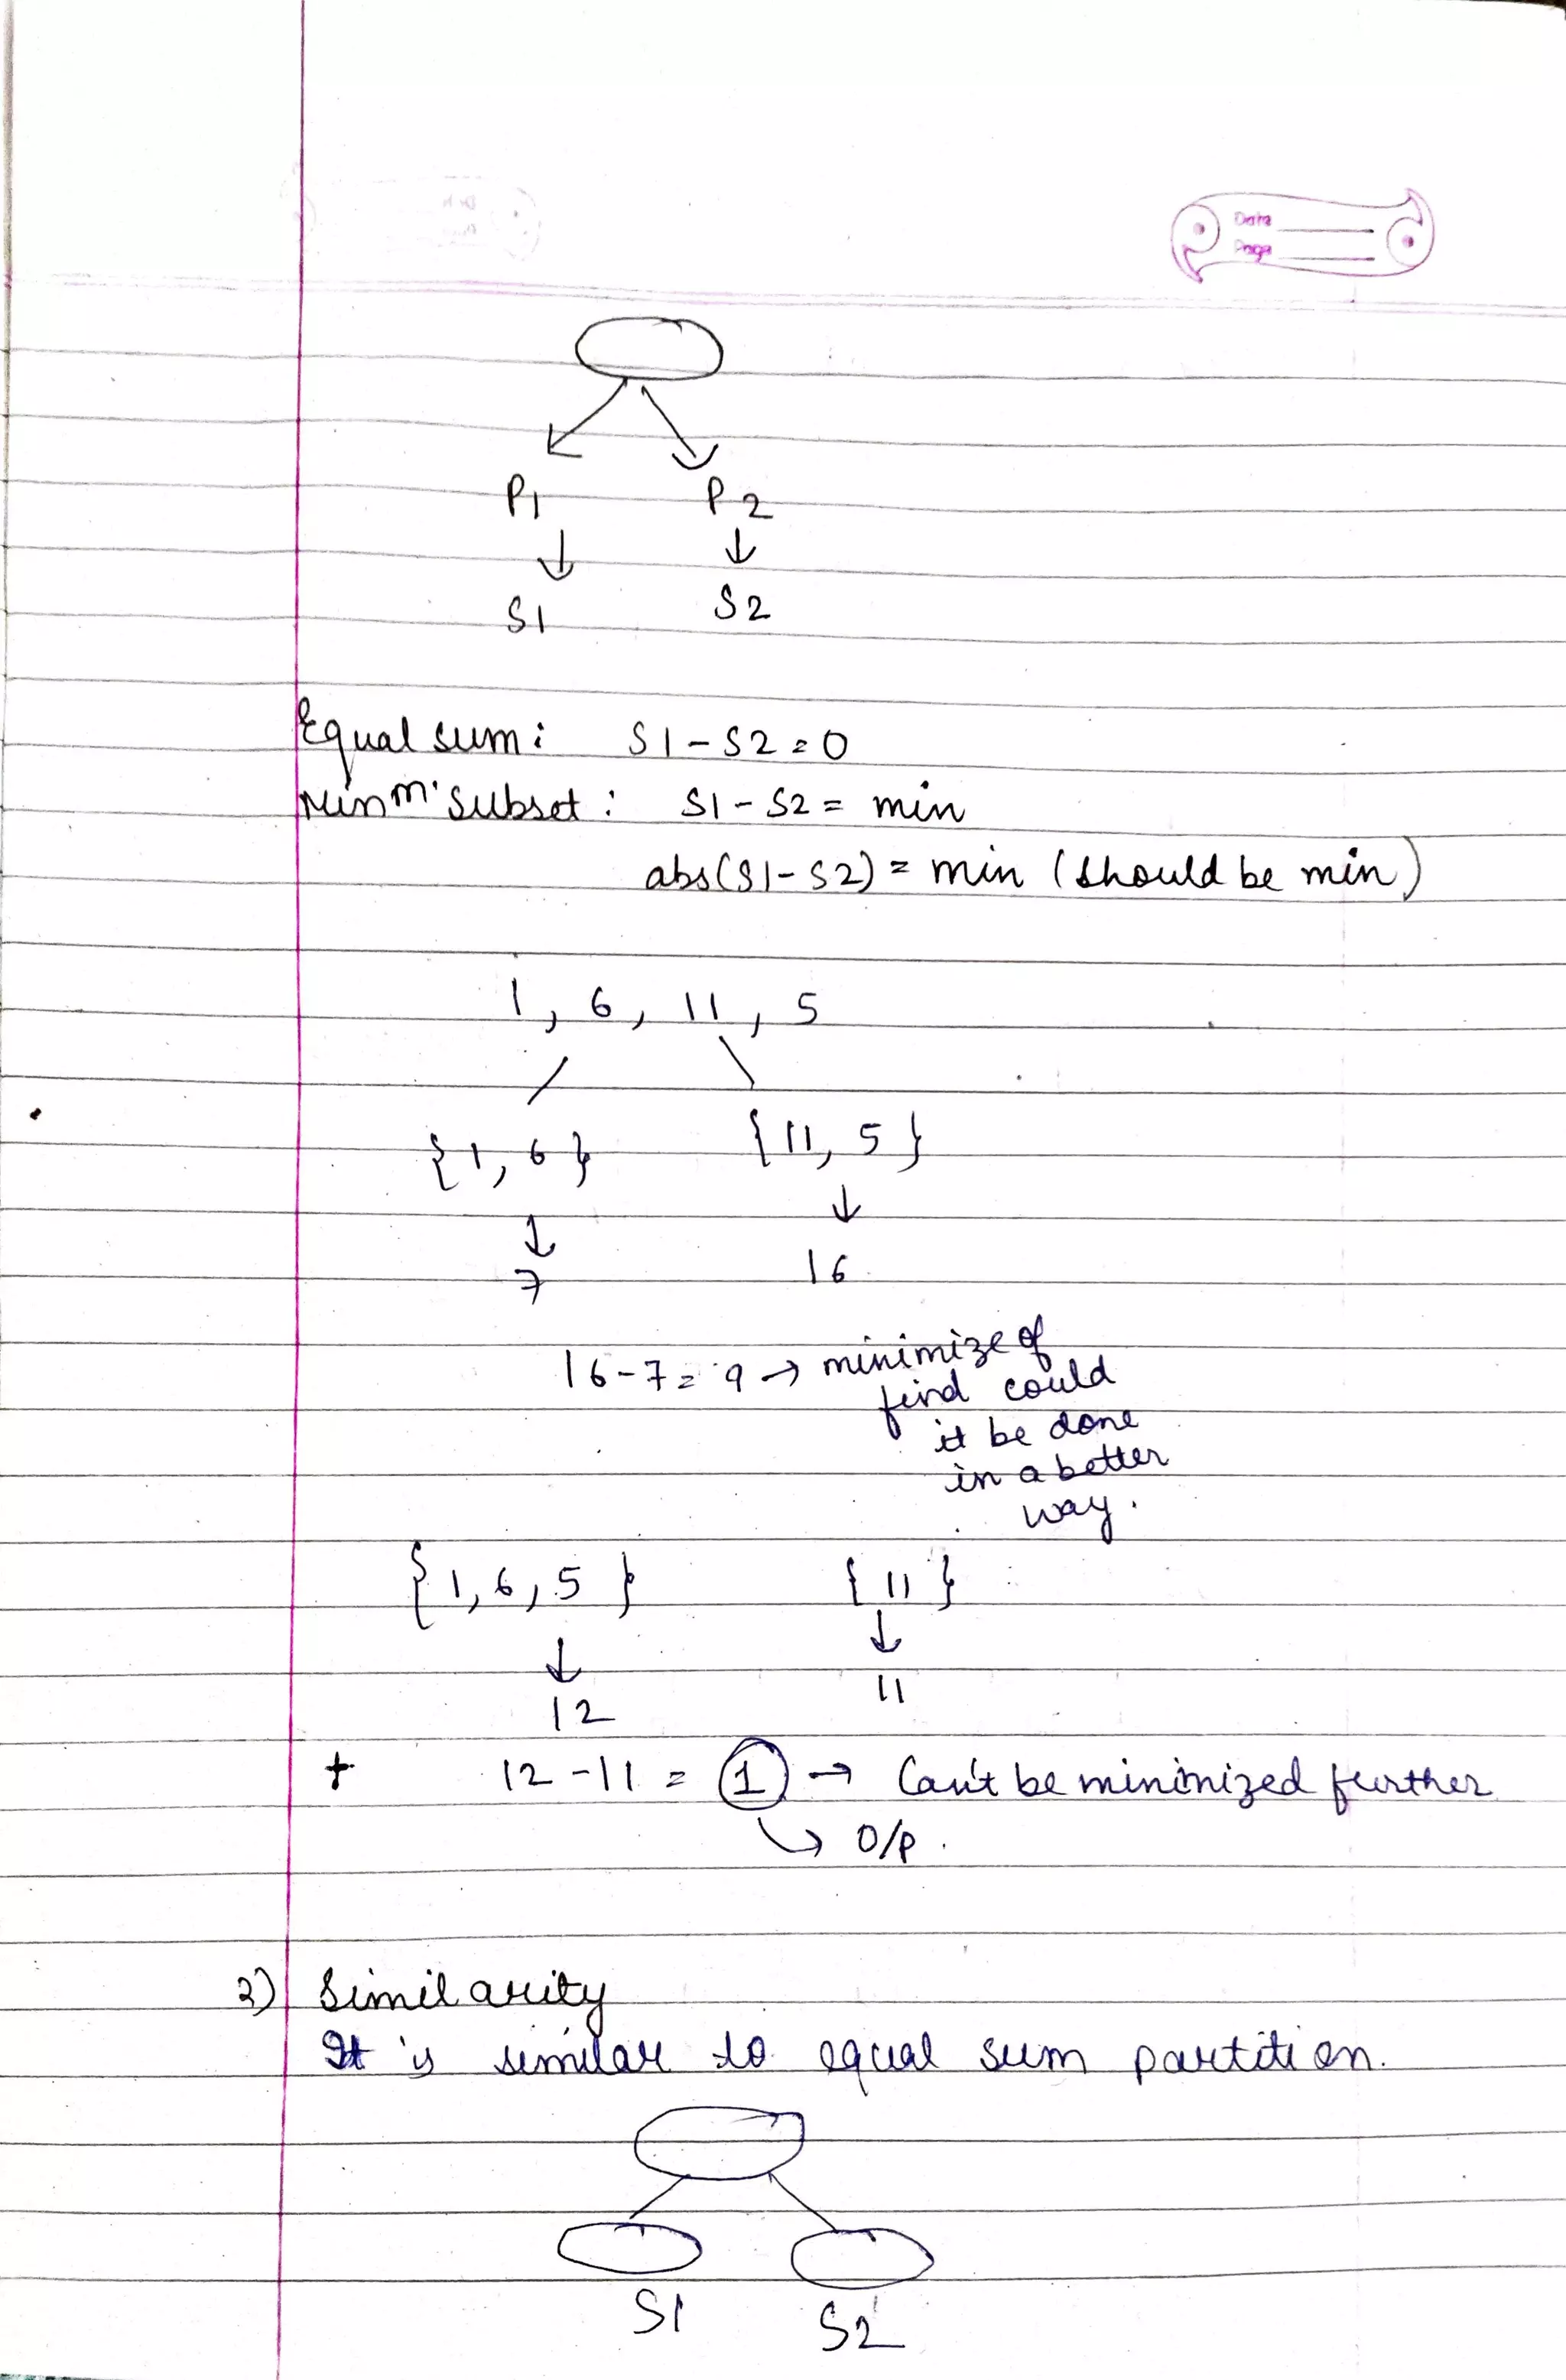 Date
Page
P1 P2
S1 S2
Equal sum: S1-S2=0
Minm. subset: S1-S2= min
abs(S1-S2)= min (should be min)
1, 6, 11, 5
{1, 6} {11, 5}
7 16
16-7= 9 → minimize of
find could
it be done
in a better
way.
{1, 6, 5} {11}
12 11
+ 12-11 = 1 → Can't be minimized further
O/P.
2) Similarity
It is similar to equal sum partition.
S1 S2